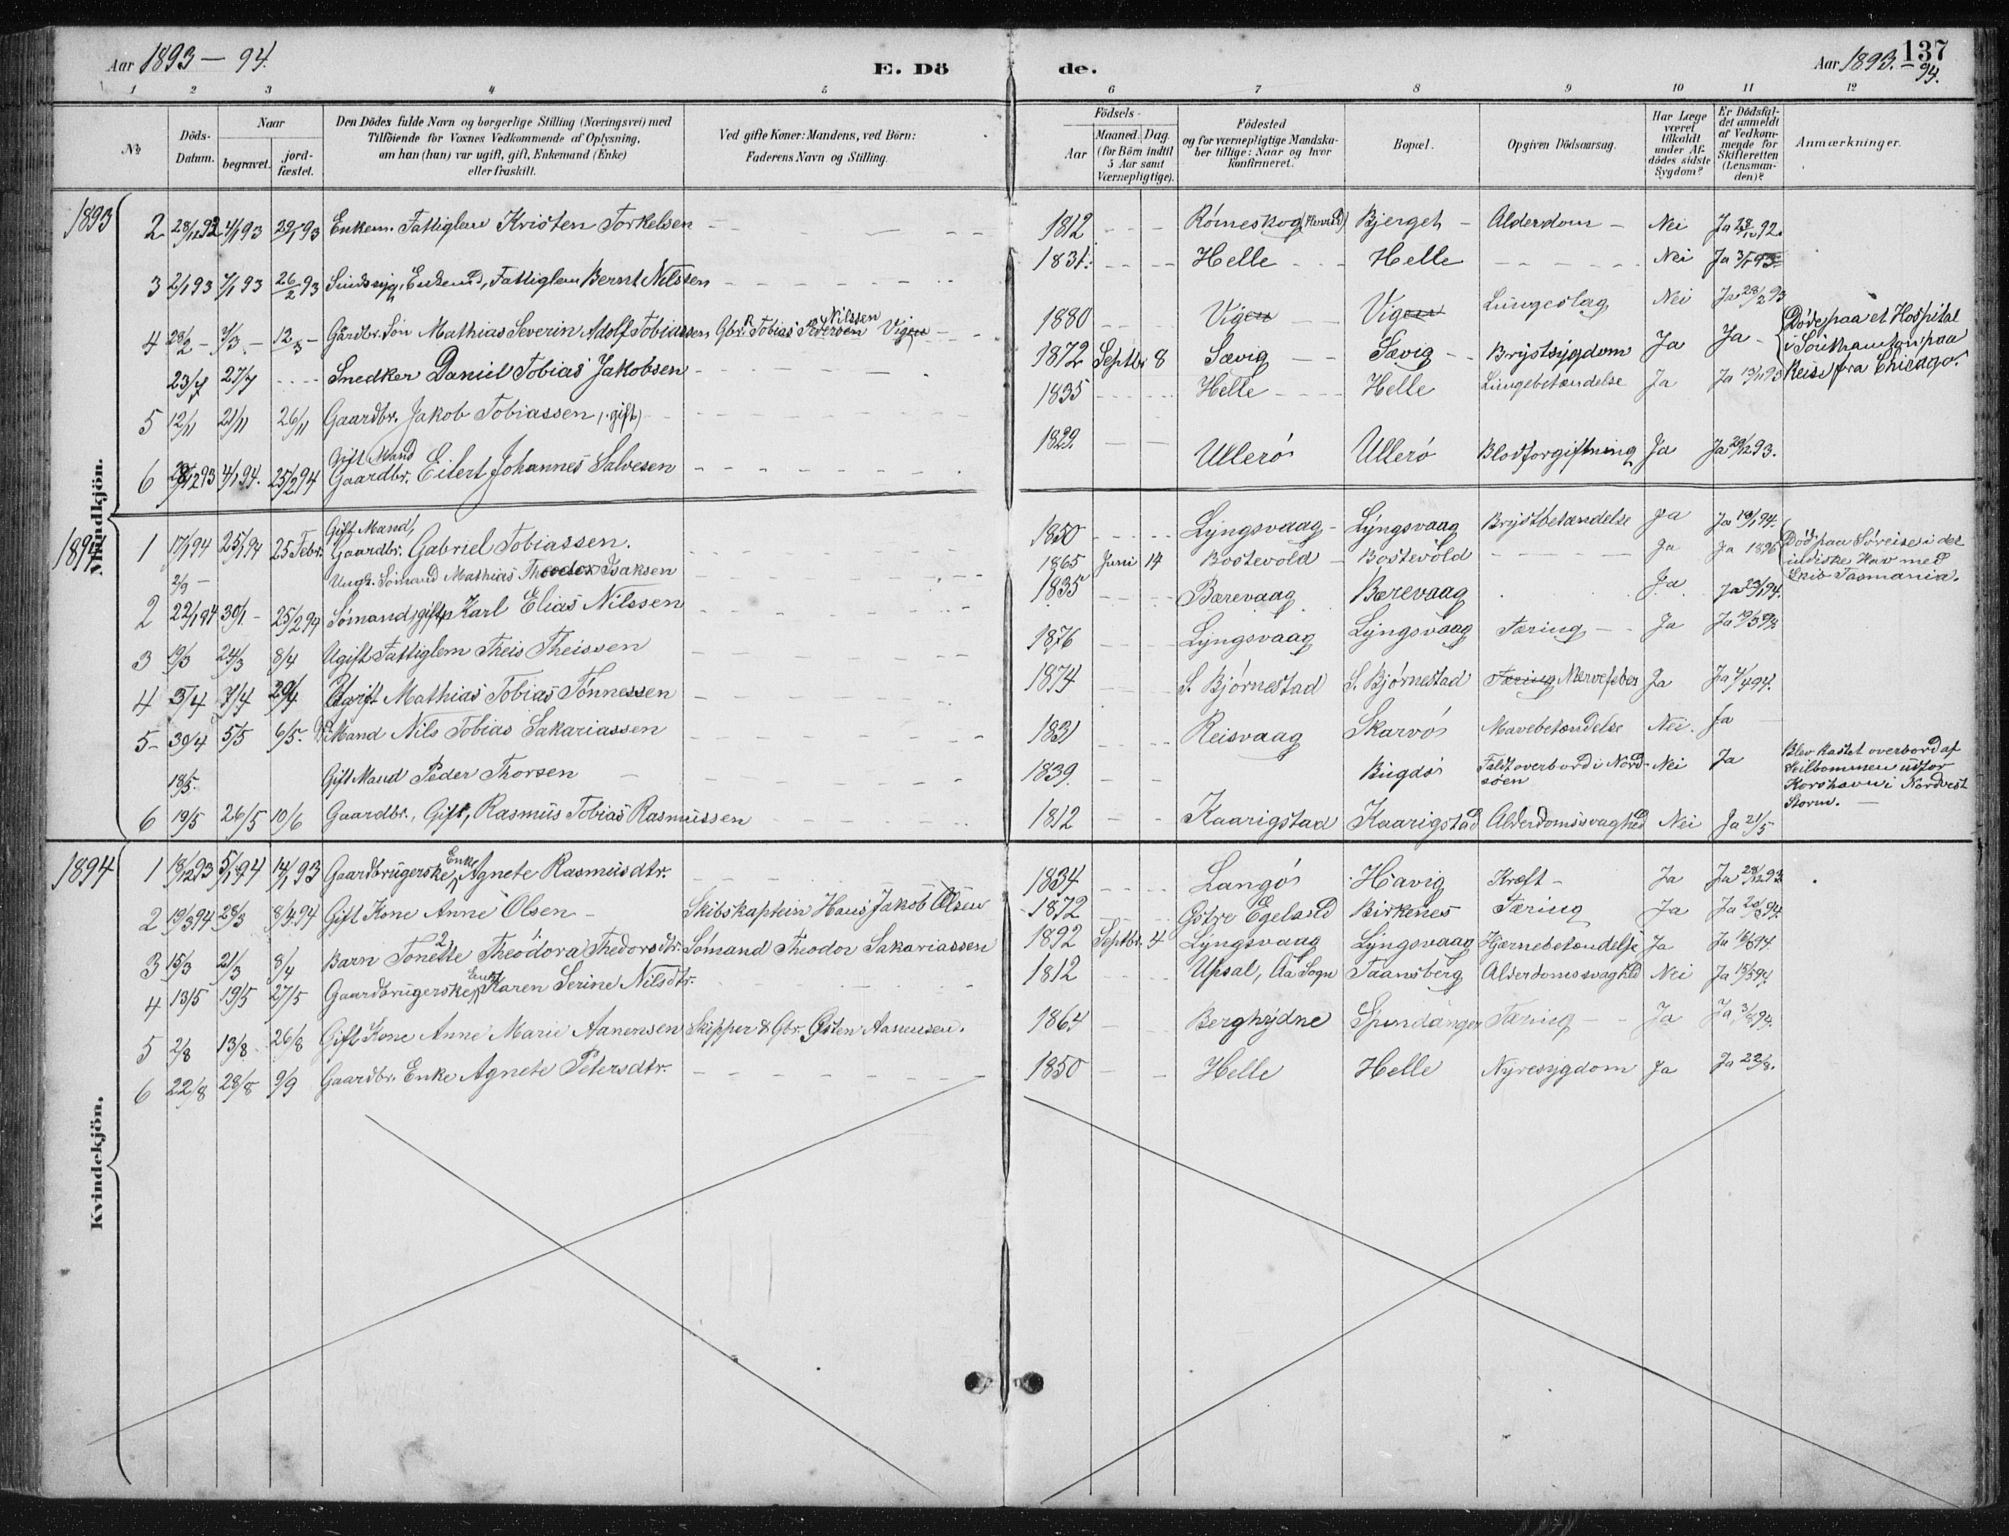 Aar 1893 — 94.
E. Dö
de.
Aar 1893. 137
94.
1 2 3 4 5 6 7 8 9 10 11 12
No
Döds-Datum.
Naar
begravet.
jord-fæstet.
Den Dödes fulde Navn og borgerlige Stilling (Næringsvei) med
Tilföiende for Voxnes Vedkommende af Oplysning,
om han (hun) var ugift, gift, Enkemand (Enke)
eller fraskilt.
Ved gifte Koner: Mandens, ved Börn:
Faderens Navn og Stilling.
Födsels-
Aar
Maaned. Dag.
(for Börn indtil
5 Aar samt
Værnepligtige).
Födested
og for værnepligtige Mandska-
ber tillige: Naar og hvor
konfirmeret.
Bopæl.
Opgiven Dödsaarsag.
Har Læge
været
tilkaldt
under Af-
dödes sidste
Sygdom?
Er Dödsfal-
det anmeldt
af Vedkom-
mende for
Skifteretten
(Lensman-
den)?
Anmærkninger.
Mandkjön.
1893
2 28/12 92 4/1 93 29/1 93 Enkem. Fattiglem Kristen Torkelsen 1812 Rómeskog (Hervid) Bjerget Alderdom Nei Ja 28/12 92.
3 2/1 93 7/1 93 26/2 93 Sindssyg, Enkemd, Fattiglem Bernt Nilssen 1831. Helle Helle Nei Ja 3/1 93
4 28/2 7/3 12/3 Gaardbr. Søn Mathias Severin Adolf Tobiassen Gbr. Tobias Pedersen Nilssen Vigen 1880 Vigen Vigen Lungeslag Nei Ja 28/2 93
23/7 27/7 Snedker Daniel Tobias Jakobsen 1872 Septbr 8 Sævig Sævig Brystsygdom Ja Ja Döde paa et Hospital
i Southamton paa
Reise fra Chicago.
5 12/11 21/11 26/11 Gaardbr. Jakob Tobiassen (gift) 1835 Helle Helle Lungebetændelse Ja Ja 13/11 93
6 28/12 93 4/1 94. 25/2 94 Gift Mand
Gaardbr. Eilert Johannes Salvesen 1829. Ullerö Ullerö Blodforgiftning Ja Ja 29/12 93.
1894
1 17/1 94 25/1 94 25 Febr. Gift Mand,
Gaardbr. Gabriel Tobiassen. 1850 Lyngsvaag Lyngsvaag Brystbetændelse Ja Ja 19/1 94.
2/9 Ungk. Sömand Mathias Theodor Isaksen 1865 Juni 14 Bostevold Bostevold Ja Ja 1896 Död paa Søreise i det
indiske Hav med
Skib Tasmania.
2 22/1 94 30/1 25/2 94 Sømand (gift) Karl Elias Nilssen 1835 Bærevaag Bærevaag Ja Ja 23/1 94.
3 19/3 24/3 8/4 Ugift Fattiglem Theis Theissen 1876 Lyngsvaag Lyngsvaag Tæring Ja Ja 19/3 94
4 3/4 7/4 29/4 Ugift Mathias Tobias Tönnessen 1874 S. Bjørnestad S. Bjørnestad Tæring Nervefeber Ja Ja 4/4 94.
5 30/4 5/5 6/5. Mand Nils Tobias Sakariassen 1831 Reisvaag Skarvö Mavebetændelse Nei. Ja
18/5. Gift Mand Peder Thorsen 1839. Bugdö Faldt overbord i Nord-
söen Nei Ja Blev kastet overbord af
Seilbommen udfor
Korshavn i Nordvest
Storm.
6 19/5 26/5 10/6 Gaardbr., Gift, Rasmus Tobias Rasmussen 1812 Kaarigstad Kaarigstad Alderdomssvaghed Nei Ja 21/5
Kvindekjön.
1894
1 18/12 93 5/1 94 14/1 93 Gaardbrugerske Enke Agnete Rasmusdtr. 1834 Langö Havig Kræft Ja Ja 28/12 93
2 19/3 94 28/3 8/4 94 Gift Kone Anne Olsen Skibskaptein Hans Jakob Olsen 1872 Østre Egeland Birkenes Tæring Ja Ja 20/3 94.
3 15/3 21/3 8/4 Barn Tonette Theodora Thedorsdtr. Sömand Theodor Sakariassen 1892 Septbr. 4 Lyngsvaag Lyngsvaag Hjernebetændelse Ja Ja
4 13/5 19/5 27/5 Gaardbrugerske Enke Karen Serine Nilsdtr. 1812 Upsal, Aa Sogn Taansberg Alderdomssvaghed Nei Ja 15/5 94.
5 2/8 13/8 26/8 Gift Kone Anne Marie Aanensen Skipper & Gbr. Østen Aanensen. 1864 Berghydne Spindangen Tæring Ja Ja 3/8 94.
6 22/8 28/8 9/9 Gaardbr. Enke Agnete Petersdtr. 1850 Helle Helle Nyresygdom Ja Ja 22/8.